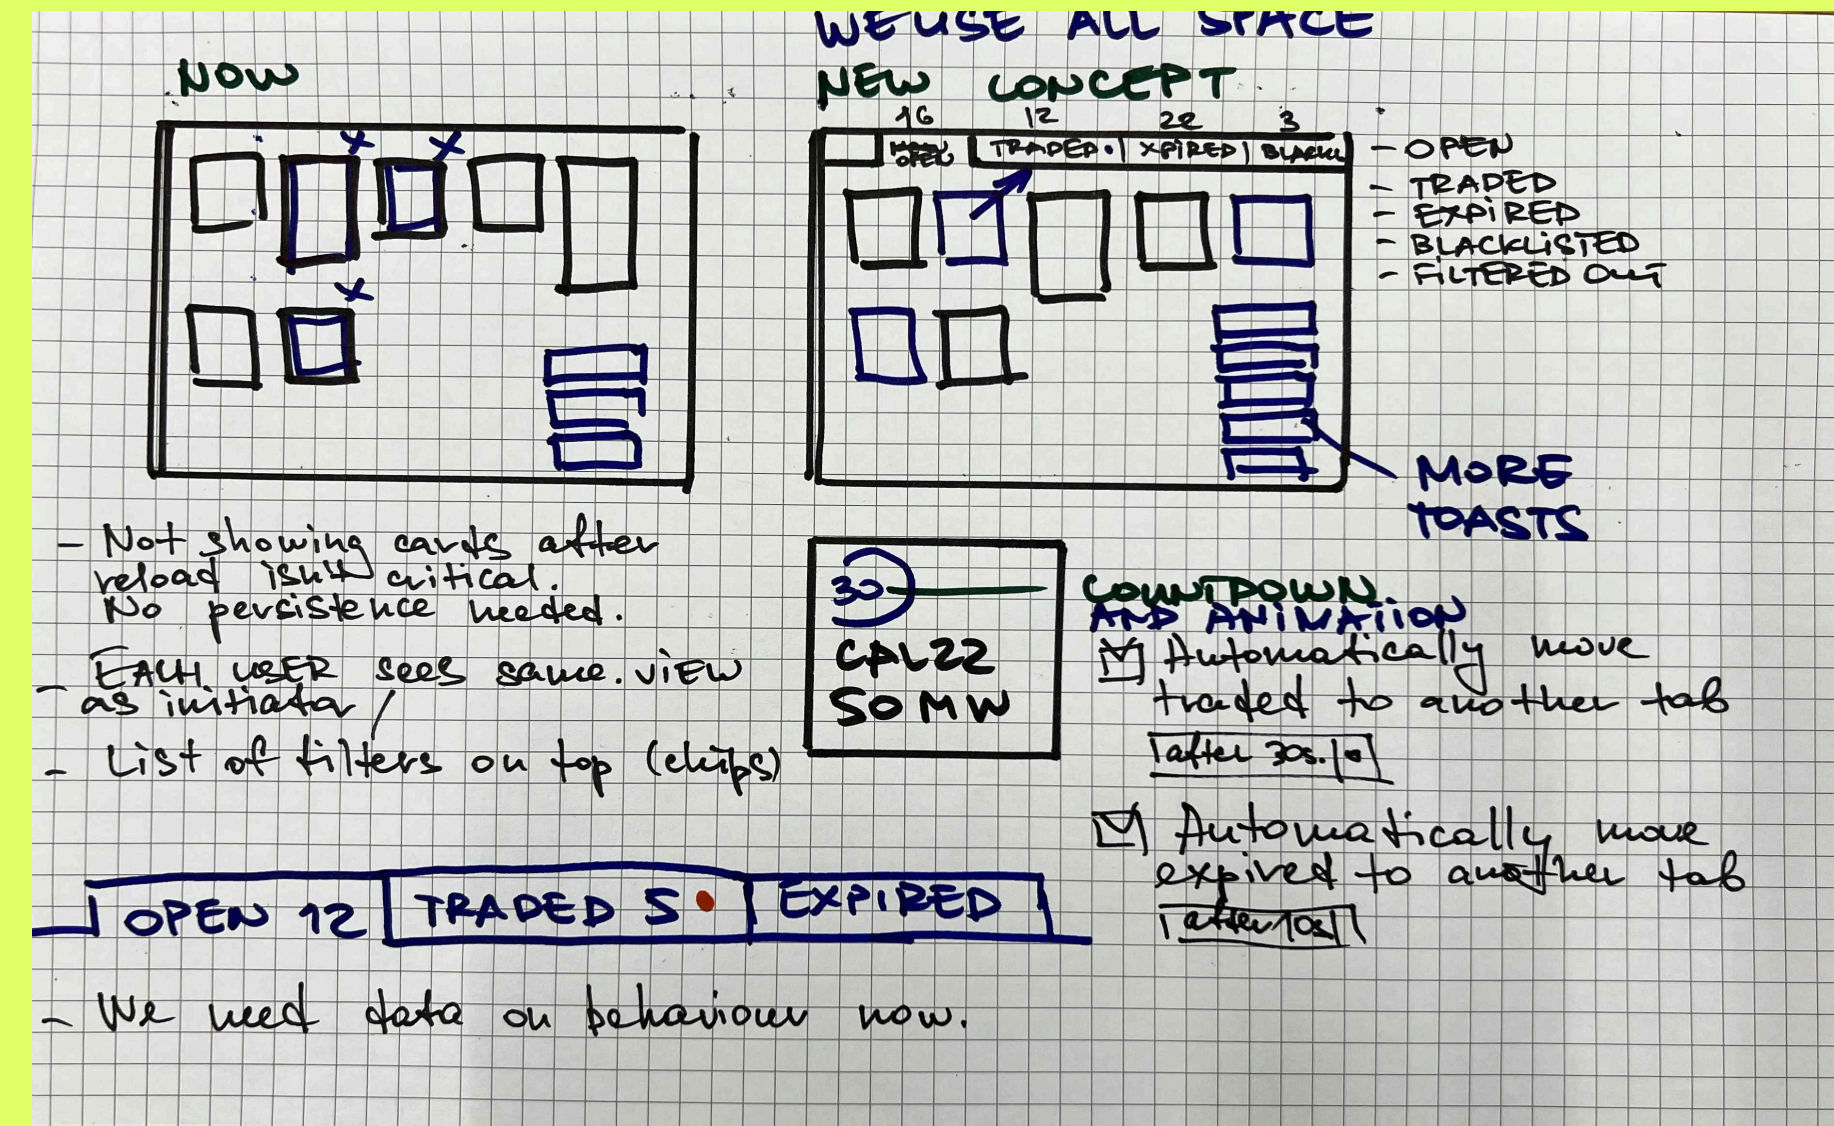 WE USE ALL SPACE
NOW
NEW CONCEPT
16 12 22 3
OPEN TRADED XPIRED BLACKL
- OPEN
- TRADED
- EXPIRED
- BLACKLISTED
- FILTERED OUT
MORE
TOASTS
- Not showing cards after
reload isn't critical.
No persistence needed.
- EACH USER sees same view
as initiator /
- List of filters on top (chips)
30
CAL22
50 MW
COUNTDOWN
AND ANIMATION
Automatically move
traded to another tab
after 30s.
Automatically move
expired to another tab
after 10s
OPEN 12 TRADED 5 EXPIRED
- We need data on behaviour now.